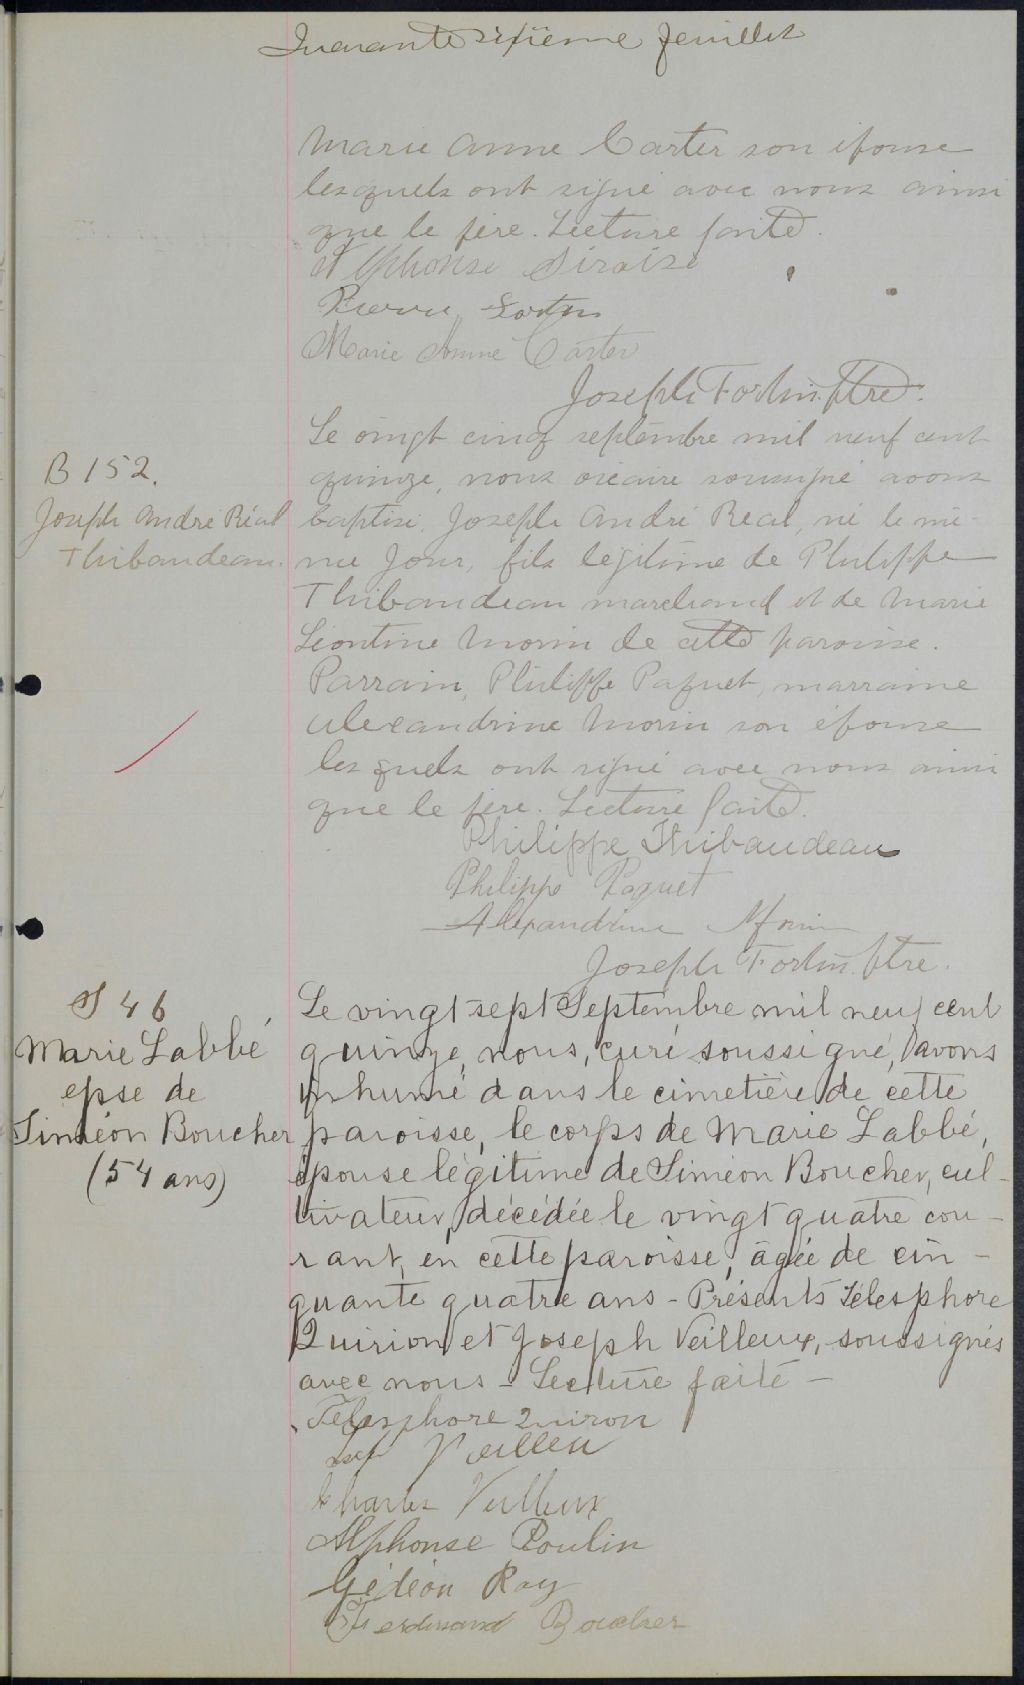 Quarante sixième feuillet
Marie Anne Carter son épouse
lesquels ont signé avec nous ainsi
que le père. Lecture faite.
Alphonse Sirois
Pierre Fortin
Marie Anne Carter
Joseph Fortin ptre.
B 152.
Joseph André Réal
Thibaudeau.
Le vingt cinq septembre mil neuf cent
quinze, nous vicaire soussigné avons
baptisé Joseph André Réal, né le mê-
me jour, fils légitime de Philippe
Thibaudeau marchand et de Marie
Léontine Morin de cette paroisse.
Parrain, Philippe Paquet, marraine
Alexandrine Morin son épouse
lesquels ont signé avec nous ainsi
que le père. Lecture faite.
Philippe Thibaudeau
Philippe Paquet
Alexandrine Morin
Joseph Fortin ptre.
S 46
Marie Labbé
epse de
Siméon Boucher
(54 ans)
Le vingt-sept Septembre mil neuf cent
quinze, nous, curé soussigné, avons
inhumé dans le cimetière de cette
paroisse, le corps de Marie Labbé,
épouse légitime de Siméon Boucher, cul-
tivateur, décédée le vingt quatre cou-
rant, en cette paroisse, âgée de cin-
quante quatre ans - Présents Télesphore
Quirion et Joseph Veilleux, soussignés
avec nous - Lecture faite -
Télesphore Quiron
Veilleu
Charles Veilleux
Alphonse Poulin
Gédéon Roy
Ferdinand Boucher